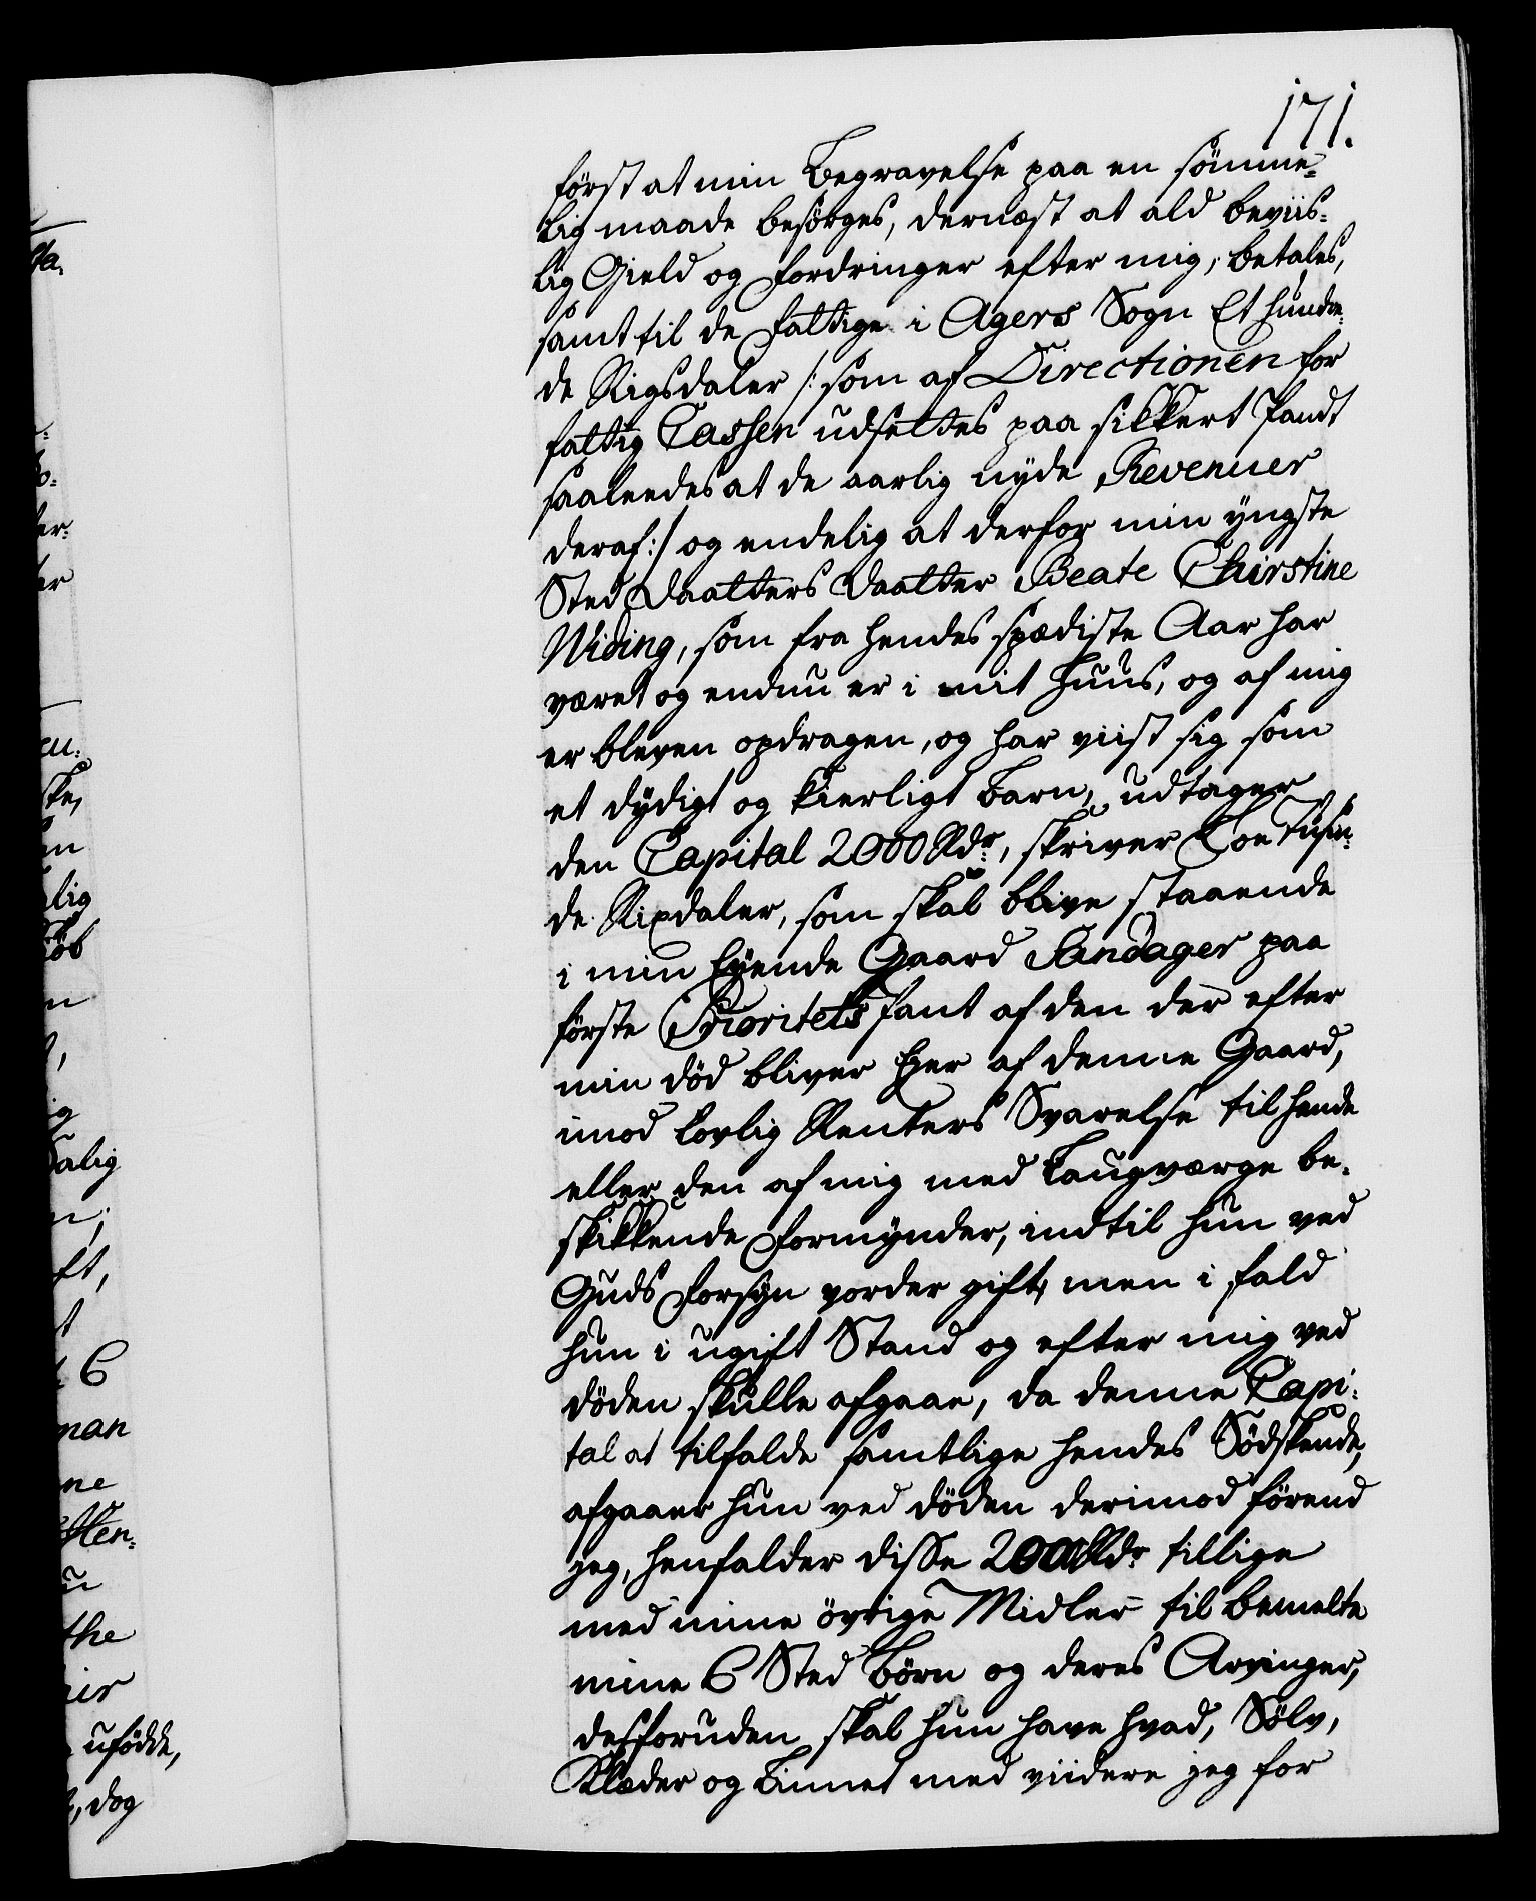 171.
først at min Begravelse paa en sömme=
lig maade besörges, dernæst at ald beviis=
lig Gield og fordringer efter mig, betales,
samt til de fattige i Agers Sogn Et hundre=
de Rigsdaler /: som af Directionen for
fattig Cassen udsettes paa sikkert Pandt
saaleedes at de aarlig nyde Revenuer
deraf :/ og endelig at derfor min yngste
Sted Daatters Daatter Beate Chirstine
Widing, som fra hendes spædiste Aar har
været og endnu er i mit Huus, og af mig
er bleven opdragen, og har viist sig som
et dydigt og kierligt Barn, udtager
den Capital 2000 Rdr, skriver Toe Tusin=
de Rixdaler, som skal blive staaende
i min Eyende Gaard Sandager paa
förste Prioritets Pant af den der efter
min död bliver Eyer af denne Gaard,
imod lovlig Renters Svarelse til hende
eller den af mig med Laugværge be=
skikkende Formynder, indtil hun ved
Guds Forsyn vorder gift, men i fald
hun i ugift Stand og efter mig ved
döden skulle afgaae, da denne Capi=
tal at tilfalde samtlige hendes Södskende,
afgaaer hun ved döden derimod förend
jeg, henfalder disse 2000 Rdr tillige
med mine övrige Midler til bemelte
mine 6 Sted Börn og deres Arvinger,
desforuden skal hun have hvad, Sölv,
Klæder og Linnet med viidere jeg for
ta,
o=
er=
er
eu.
ske,
en
lig
kiöb
n
ig
alig
n,
ft,
t
6
man
ne
sten=
u
the
er
ufödde,
dog